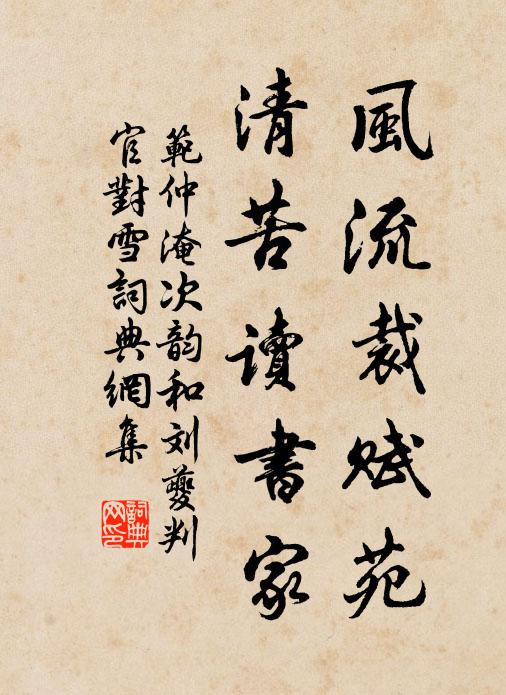 風流裁赋苑
清苦讀書家
範仲淹次韵和刘夔判
官對雪詞典網集
詞典网印